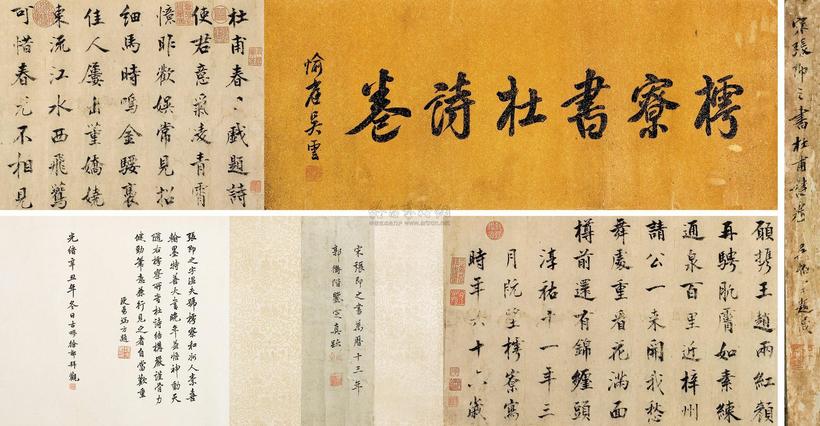 宋張即之書杜甫詩
樗寮書杜詩卷
愉庭吳雲
杜甫春〻戲題詩
使君意氣凌青霄
憶昨歡娛常見招
細馬時鳴金騕褭
佳人屢出董嬌嬈
東流江水西飛鷰
可惜春光不相見
願攜王趙兩紅顏
再騁肌膚如素練
通泉百里近梓州
請公一來開我愁
舞處重看花滿面
樽前還有錦纏頭
淳祐十一年三
月既望樗寮寫
時年六十六歲
宋張即之書萬曆十三年
郭衢階鑒定真跡
張即之字溫夫號樗寮和州人素喜
翰墨特善大書晚年益悟神動天
隨樗寮所書杜詩結構嚴謹骨力
健勁筆意兼行見之者自當歡重
光緒辛丑年冬日徐郙拜觀